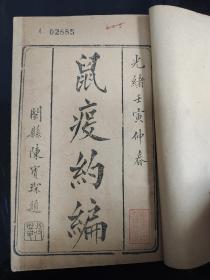 02885
光緒壬寅仲春
鼠疫約編
閩縣陳寶琛題